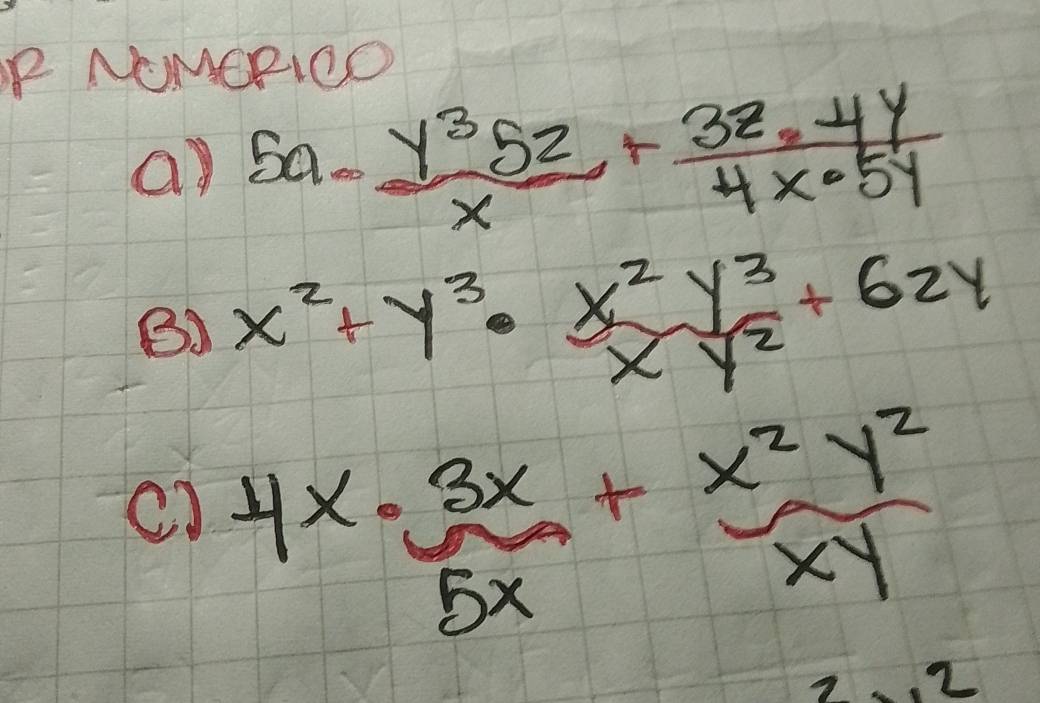 NUMERICO
a) 5a - y³5z/x + 3z · 4y/4x · 5y
B) x² + y³ · x² y³/x y² + 6zy
C) 4x · 3x/5x + x² y²/xy